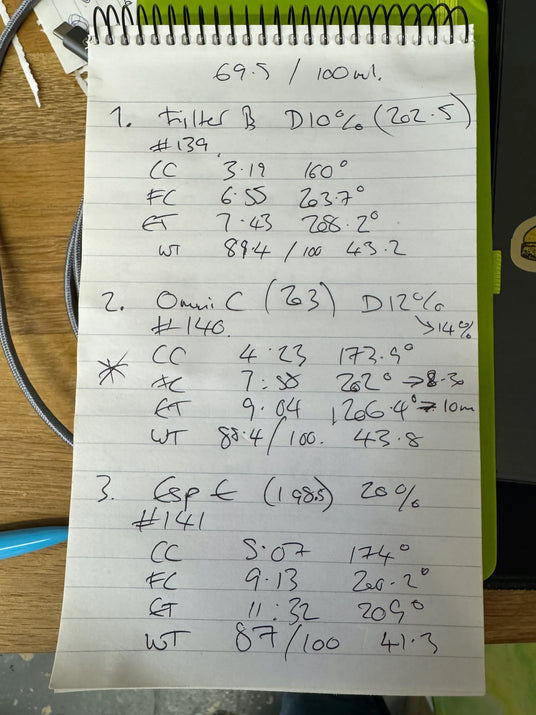 69.5 / 100ml.
1. Filter B D10% (202.5)
#139
CC 3.19 160°
FC 6.55 203.7°
ET 7.43 208.2°
WT 89.4 / 100 43.2
2. Omni C (203) D12%
#140 ↘14%
CC 4:23 173.9°
* FC 7:58 202° → 8.30
ET 9.04 206.4° → 10m
WT 88.4 / 100. 43.8
3. Esp E (198.5) 20%
#141
CC 5:07 174°
FC 9.13 200.2°
ET 11:32 209°
WT 87 / 100 41.3